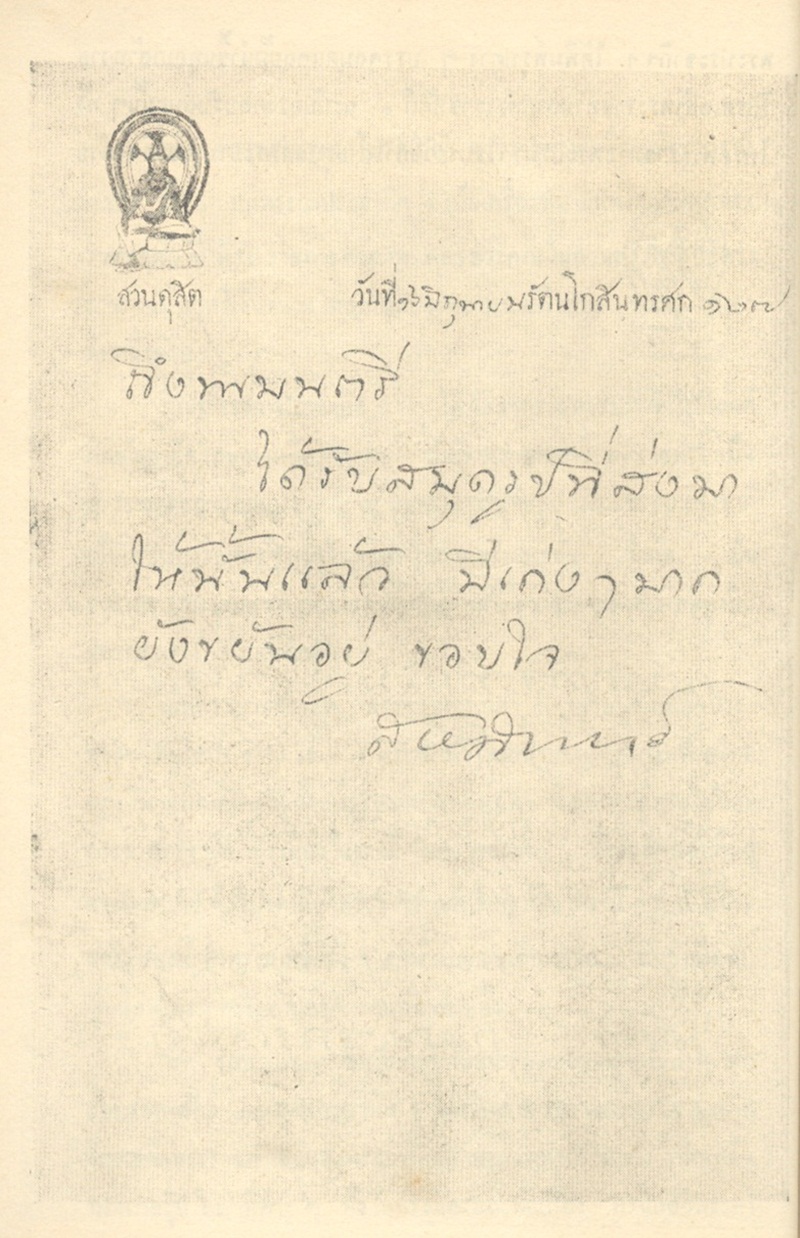 สวนดุสิต
วันที่ ๑๖ มิถุนายน รัตนโกสินทรศก ๑๒๗
ถึงพระมนตรี
ได้รับสมุดรูปที่ส่งมา
ให้นั้นแล้ว มีเก่งๆ มาก
ยังขยันอยู่ ขอบใจ